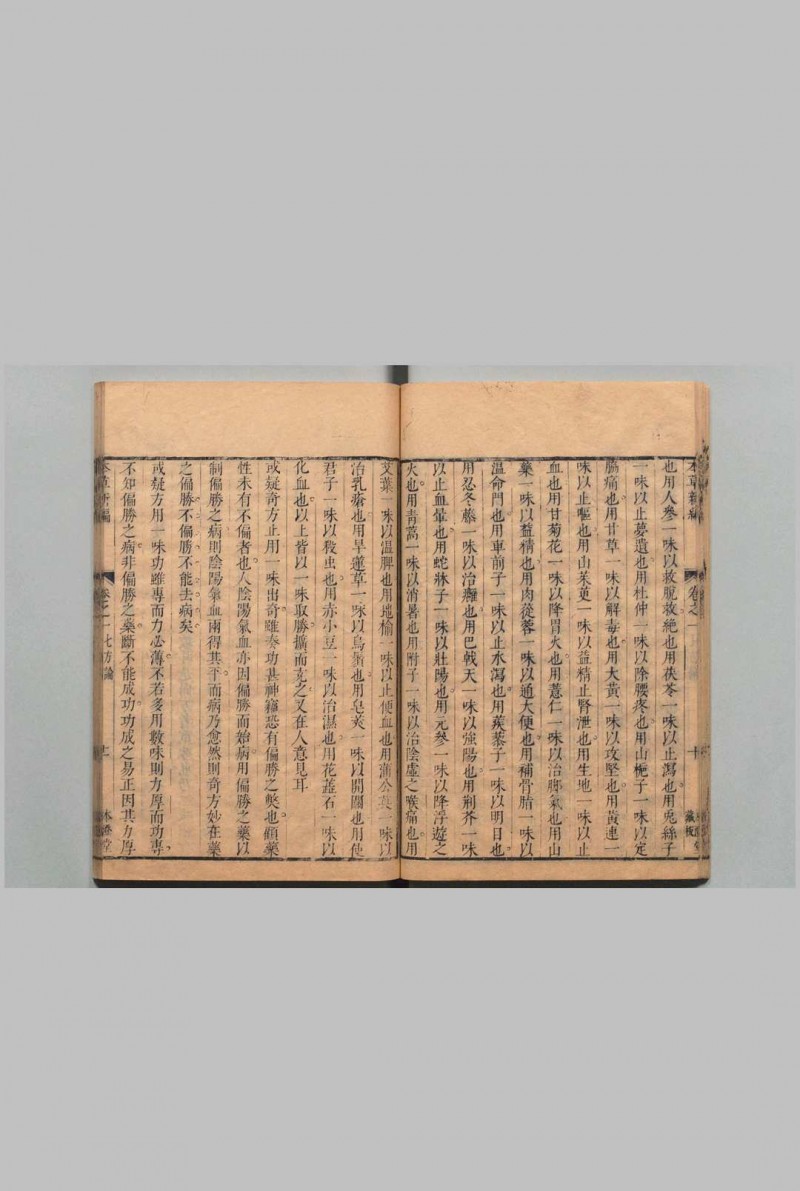 本草新編
卷之一
十
藏板
也用人參一味以救脫救絕也用茯苓一味以止瀉也用兎絲子
一味以止夢遺也用杜仲一味以除腰疼也用山梔子一味以定
脇痛也用甘草一味以解毒也用大黃一味以攻堅也用黃連一
味以止嘔也用山茱萸一味以益精止腎泄也用生地一味以止
血也用甘菊花一味以降胃火也用薏仁一味以治脚氣也用山
藥一味以益精也用肉蓯蓉一味以通大便也用補骨脂一味以
溫命門也用車前子一味以止水瀉也用蒺藜子一味以明目也
用忍冬藤一味以治癰也用巴戟天一味以強陽也用荆芥一味
以止血暈也用蛇牀子一味以壯陽也用元參一味以降浮遊之
火也用靑蒿一味以消暑也用附子一味以治陰虛之喉痛也用
艾葉一味以溫脾也用地榆一味以止便血也用蒲公英一味以
治乳瘡也用旱蓮草一味以烏鬚也用皂莢一味以開關也用使
君子一味以殺虫也用赤小豆一味以治濕也用花蕊石一味以
化血也以上皆以一味取勝擴而充之又在人意見耳
或疑奇方止用一味出奇雖奏功甚神竊恐有偏勝之獘也顧藥
性未有不偏者也人陰陽氣血亦因偏勝而始病用偏勝之藥以
制偏勝之病則陰陽氣血兩得其平而病乃愈然則奇方妙在藥
之偏勝不偏勝不能去病矣
或疑方用一味功雖專而力必薄不若多用數味則力厚而功專
不知偏勝之病非偏勝之藥斷不能成功功成之易正因其力厚
本草新編
卷之一 七方論
十一
本澄堂